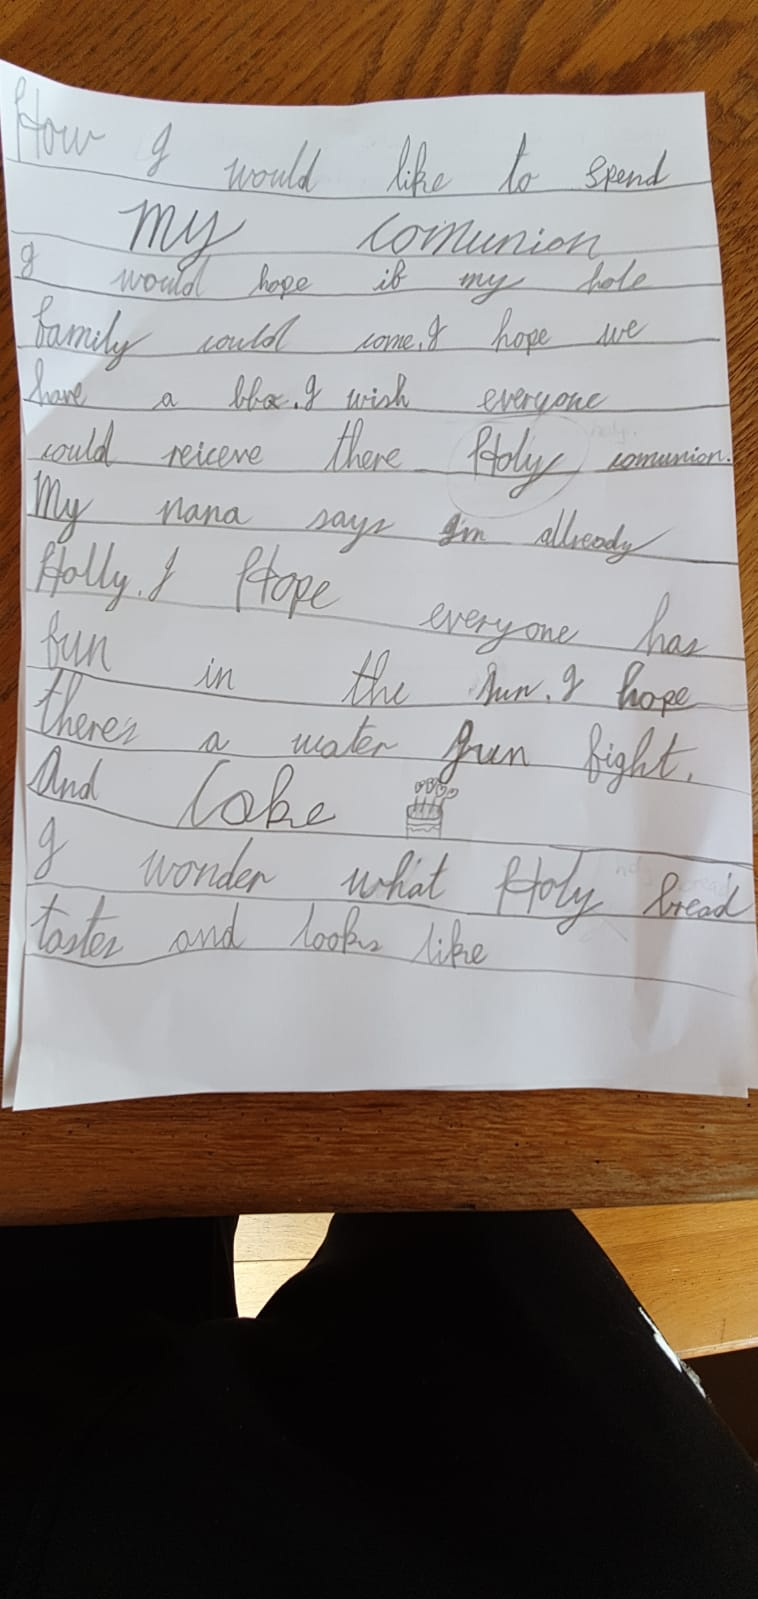 How I would like to spend
My comunion
I would hope if my hole
family could come. I hope we
have a bbq. I wish everyone
could reiceve there Holy comunion.
My nana says I'm allready
Holly. I Hope everyone has
fun in the sun. I hope
there's a water gun fight.
And Cake
I wonder what Holy bread
tastes and looks like